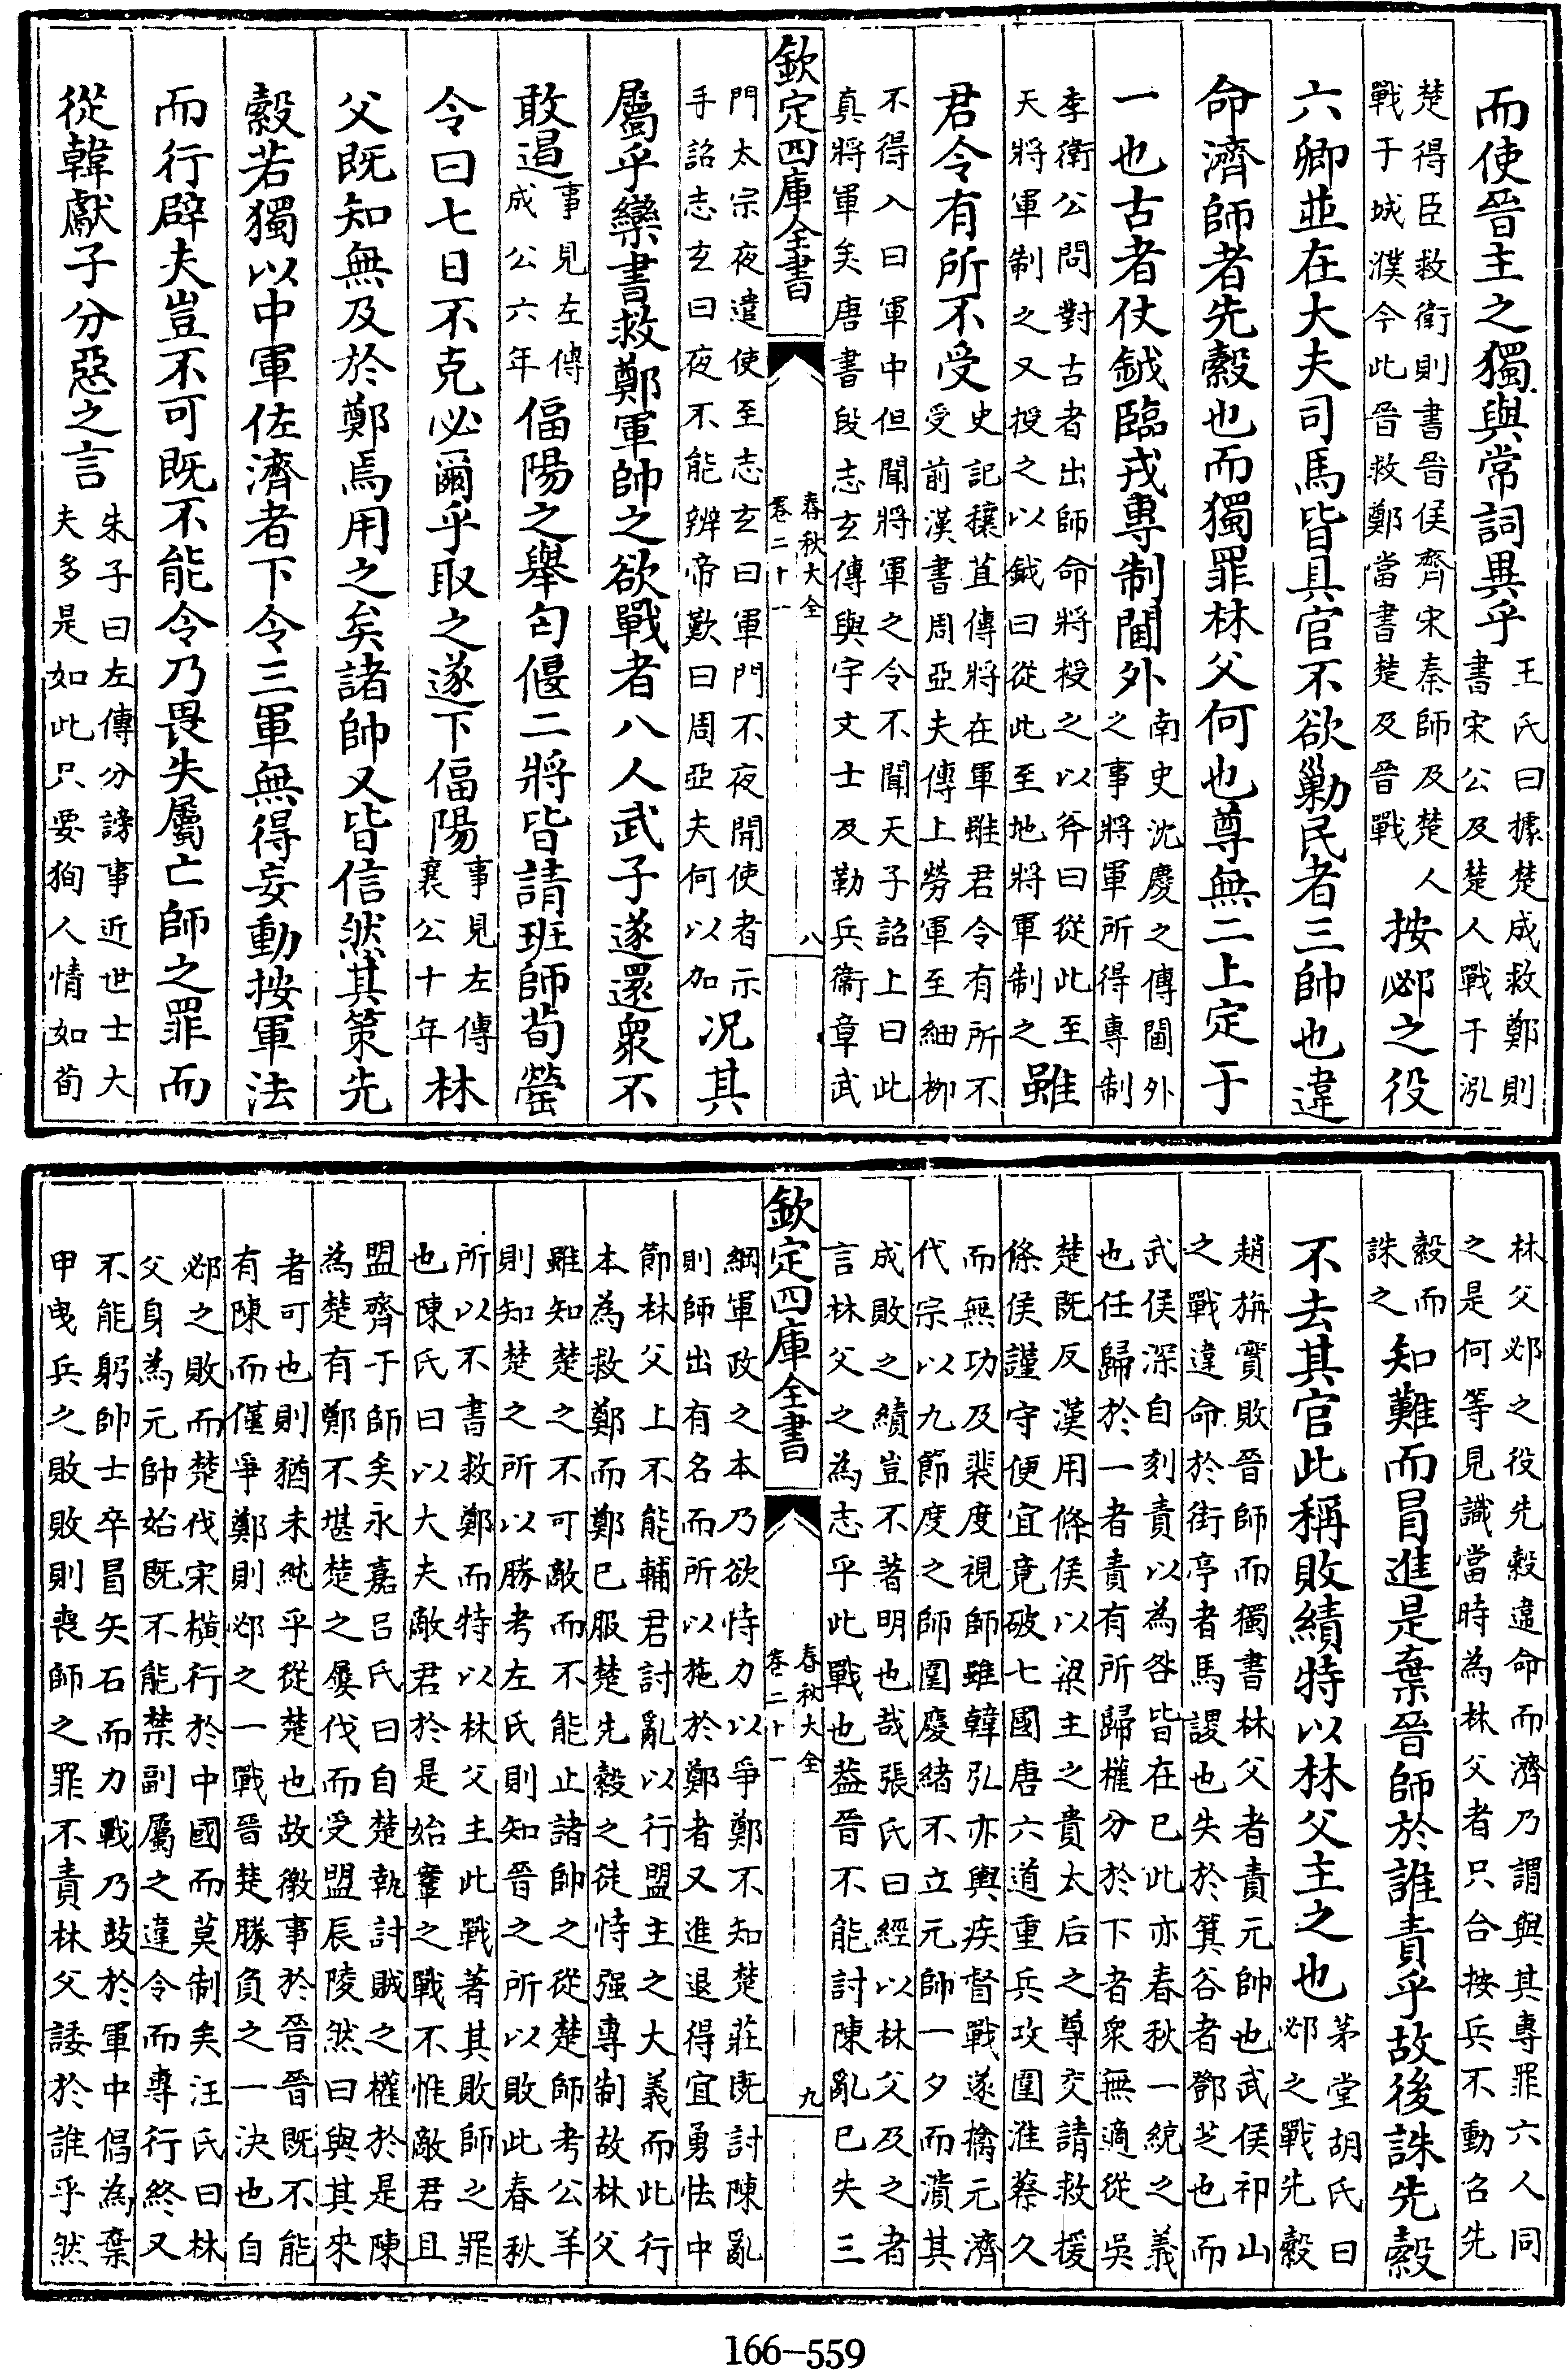 而使晉主之獨與常詞異乎王氏曰據楚成救鄭則書宋公及楚人戰于泓
楚得臣救衛則書晉侯齊宋秦師及楚人戰于城濮今此晉救鄭當書楚及晉戰按邲之役
六卿並在大夫司馬皆具官不欲勦民者三帥也違
命濟師者先縠也而獨罪林父何也尊無二上定于
一也古者仗鉞臨戎專制閫外南史沈慶之傳閫外之事將軍所得專制
李衛公問對古者出師命將授之以斧曰從此至天將軍制之又授之以鉞曰從此至地將軍制之雖
君令有所不受史記穰苴傳將在軍雖君令有所不受前漢書周亞夫傳上勞軍至細栁
不得入曰軍中但聞將軍之令不聞天子詔上曰此真將軍矣唐書段志玄傳與宇文士及勒兵衞章武
欽定四庫全書 春秋大全卷二十一 八
門太宗夜遣使至志玄曰軍門不夜開使者示手詔志玄曰夜不能辨帝歎曰周亞夫何以加况其
屬乎欒書救鄭軍帥之欲戰者八人武子遂還衆不
敢遏事見左傳成公六年偪陽之舉匄偃二將皆請班師荀罃
令曰七日不克必爾乎取之遂下偪陽事見左傳襄公十年林
父既知無及於鄭焉用之矣諸帥又皆信然其策先
縠若獨以中軍佐濟者下令三軍無得妄動按軍法
而行辟夫豈不可既不能令乃畏失屬亡師之罪而
從韓獻子分惡之言朱子曰左傳分謗事近世士大夫多是如此只要狥人情如荀
林父邲之役先縠違命而濟乃謂與其專罪六人同之是何等見識當時為林父者只合按兵不動召先
縠而誅之知難而冒進是棄晉師於誰責乎故後誅先縠
不去其官此稱敗績特以林父主之也茅堂胡氏曰邲之戰先縠
趙旃實敗晉師而獨書林父者責元帥也武侯祁山之戰違命於街亭者馬謖也失於箕谷者鄧芝也而
武侯深自刻責以為咎皆在已此亦春秋一統之義也任歸於一者責有所歸權分於下者衆無適從吳
楚既反漢用條侯以梁主之貴太后之尊交請救援條侯謹守便宜竟破七國唐六道重兵攻圍淮蔡久
而無功及裴度視師雖韓弘亦輿疾督戰遂擒元濟代宗以九節度之師圍慶緒不立元帥一夕而潰其
成敗之績豈不著明也哉張氏曰經以林父及之者言林父之為志乎此戰也葢晉不能討陳亂已失三
欽定四庫全書 春秋大全卷二十一 九
綱軍政之本乃欲恃力以爭鄭不知楚莊既討陳亂則師出有名而所以施於鄭者又進退得宜勇怯中
節林父上不能輔君討亂以行盟主之大義而此行本為救鄭而鄭已服楚先縠之徒恃强專制故林父
雖知楚之不可敵而不能止諸帥之從楚師考公羊則知楚之所以勝考左氏則知晉之所以敗此春秋
所以不書救鄭而特以林父主此戰著其敗師之罪也陳氏曰以大夫敵君於是始鞌之戰不惟敵君且
盟齊于師矣永嘉呂氏曰自楚執討賊之權於是陳為楚有鄭不堪楚之屢伐而受盟辰陵然曰與其來
者可也則猶未純乎從楚也故徼事於晉晉既不能有陳而僅爭鄭則邲之一戰晉楚勝負之一決也自
邲之敗而楚伐宋橫行於中國而莫制矣汪氏曰林父身為元帥始既不能禁副屬之違令而專行終又
不能躬帥士卒冒矢石而力戰乃鼓於軍中倡為棄甲曳兵之敗敗則喪師之罪不責林父諉於誰乎然
166-559